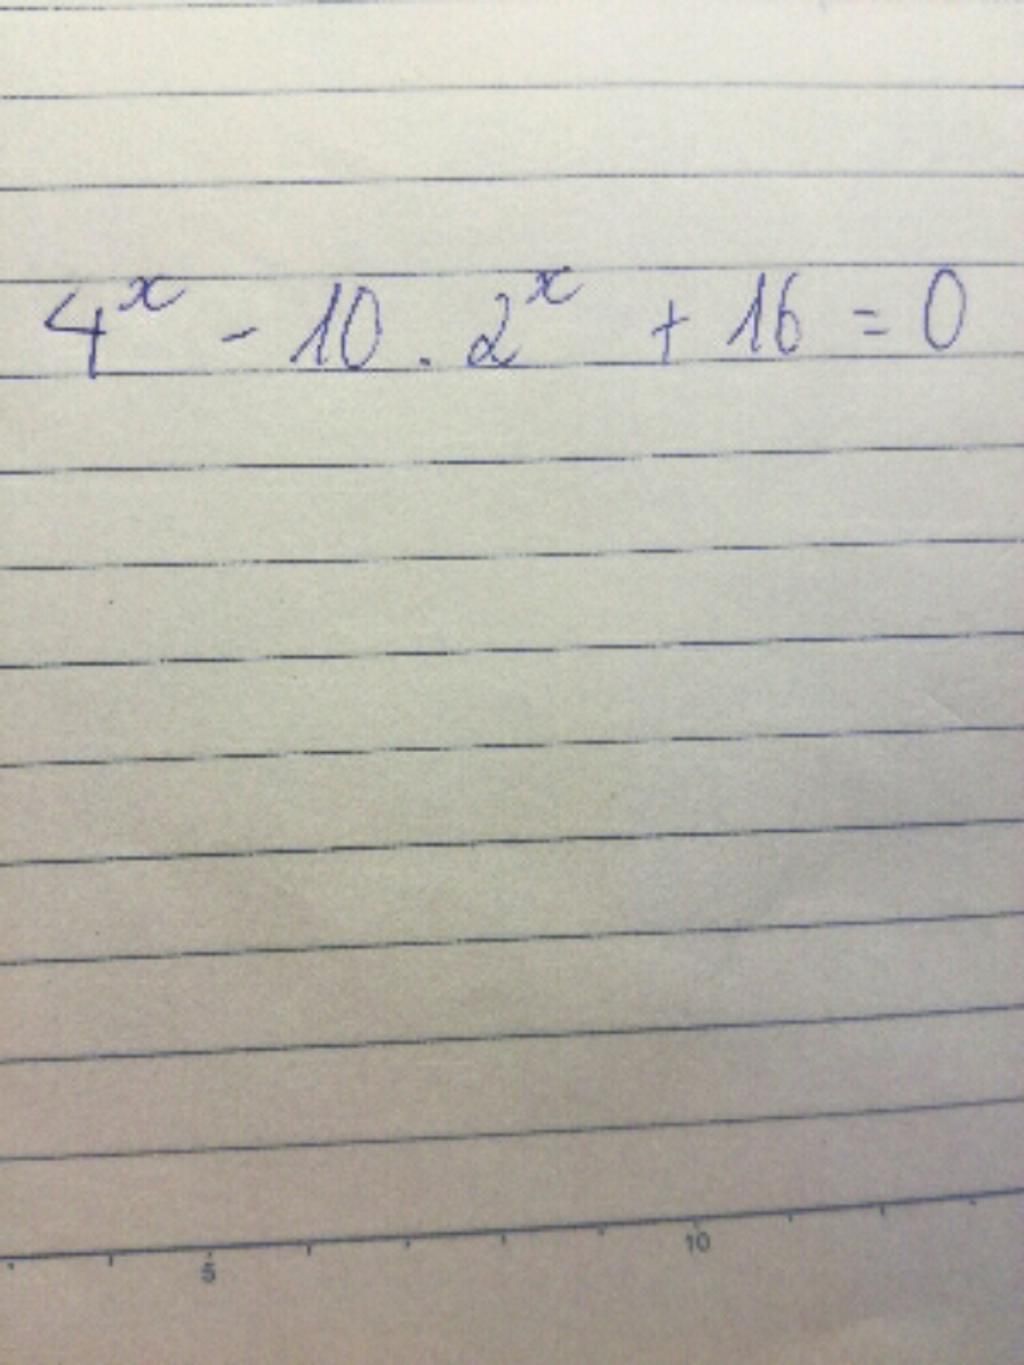 4^x - 10 . 2^x + 16 = 0
5 10